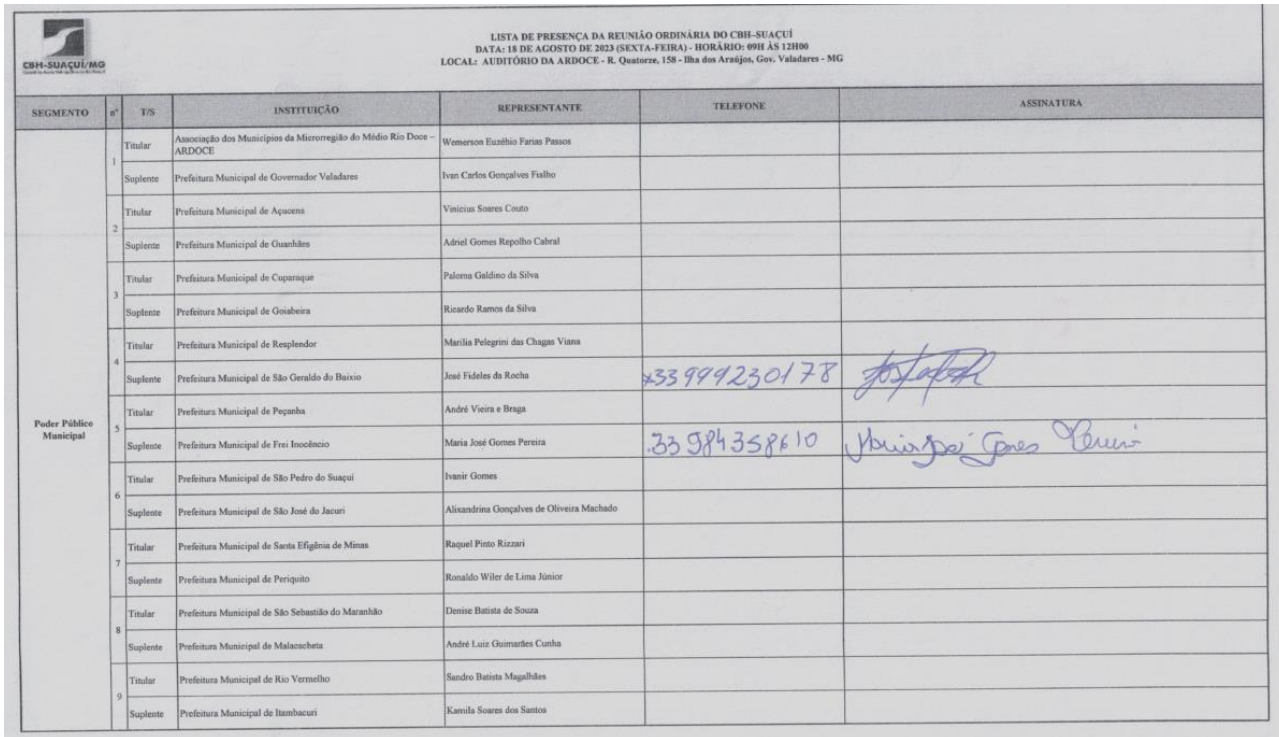 CBH-SUAÇUÍ/MG
LISTA DE PRESENÇA DA REUNIÃO ORDINÁRIA DO CBH–SUAÇUÍ
DATA: 18 DE AGOSTO DE 2023 (SEXTA-FEIRA) - HORÁRIO: 09H ÀS 12H00
LOCAL: AUDITÓRIO DA ARDOCE - R. Quatorze, 158 - Ilha dos Araújos, Gov. Valadares - MG
SEGMENTO nº T/S INSTITUIÇÃO REPRESENTANTE TELEFONE ASSINATURA
Poder Público
Municipal
1
Titular Associação dos Municípios da Microrregião do Médio Rio Doce –
ARDOCE Wemerson Euzébio Farias Passos
Suplente Prefeitura Municipal de Governador Valadares Ivan Carlos Gonçalves Fialho
2
Titular Prefeitura Municipal de Açucena Vinicius Soares Couto
Suplente Prefeitura Municipal de Guanhães Adriel Gomes Repolho Cabral
3
Titular Prefeitura Municipal de Cuparaque Paloma Galdino da Silva
Suplente Prefeitura Municipal de Goiabeira Ricardo Ramos da Silva
4
Titular Prefeitura Municipal de Resplendor Marilia Pelegrini das Chagas Viana
Suplente Prefeitura Municipal de São Geraldo do Baixio José Fideles da Rocha 33 999230178
5
Titular Prefeitura Municipal de Peçanha André Vieira e Braga
Suplente Prefeitura Municipal de Frei Inocêncio Maria José Gomes Pereira 33 984358610 Maria José Gomes Pereira
6
Titular Prefeitura Municipal de São Pedro do Suaçui Ivanir Gomes
Suplente Prefeitura Municipal de São José do Jacuri Alixandrina Gonçalves de Oliveira Machado
7
Titular Prefeitura Municipal de Santa Efigênia de Minas Raquel Pinto Rizzari
Suplente Prefeitura Municipal de Periquito Ronaldo Wiler de Lima Júnior
8
Titular Prefeitura Municipal de São Sebastião do Maranhão Denise Batista de Souza
Suplente Prefeitura Municipal de Malacacheta André Luiz Guimarães Cunha
9
Titular Prefeitura Municipal de Rio Vermelho Sandro Batista Magalhães
Suplente Prefeitura Municipal de Itambacuri Kamila Soares dos Santos